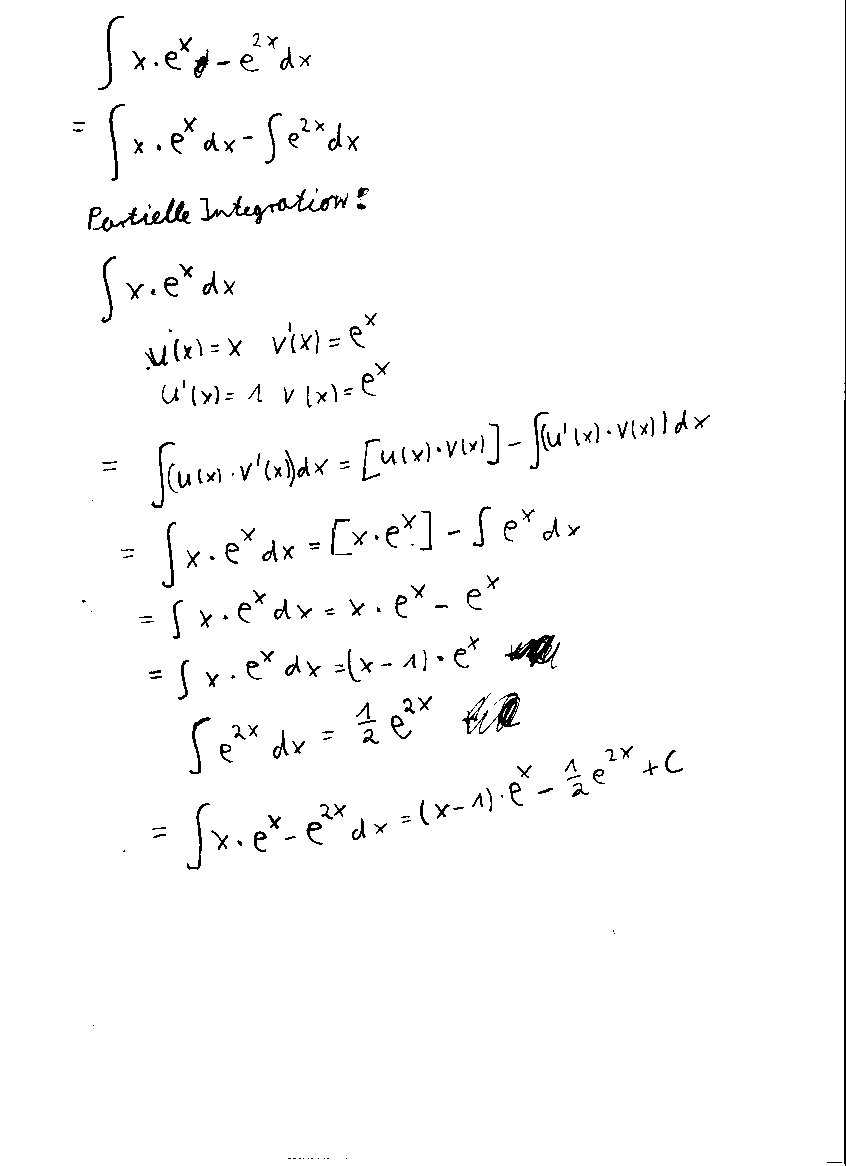 ∫ x·e^x - e^2x dx
= ∫ x·e^x dx - ∫ e^2x dx
Partielle Integration:
∫ x·e^x dx
u(x) = x v'(x) = e^x
u'(x) = 1 v(x) = e^x
= ∫(u(x)·v'(x))dx = [u(x)·v(x)] - ∫(u'(x)·v(x))dx
= ∫ x·e^x dx = [x·e^x] - ∫ e^x dx
= ∫ x·e^x dx = x·e^x - e^x
= ∫ x·e^x dx = (x-1)·e^x
∫ e^2x dx = 1/2 e^2x
= ∫ x·e^x - e^2x dx = (x-1)·e^x - 1/2 e^2x + C